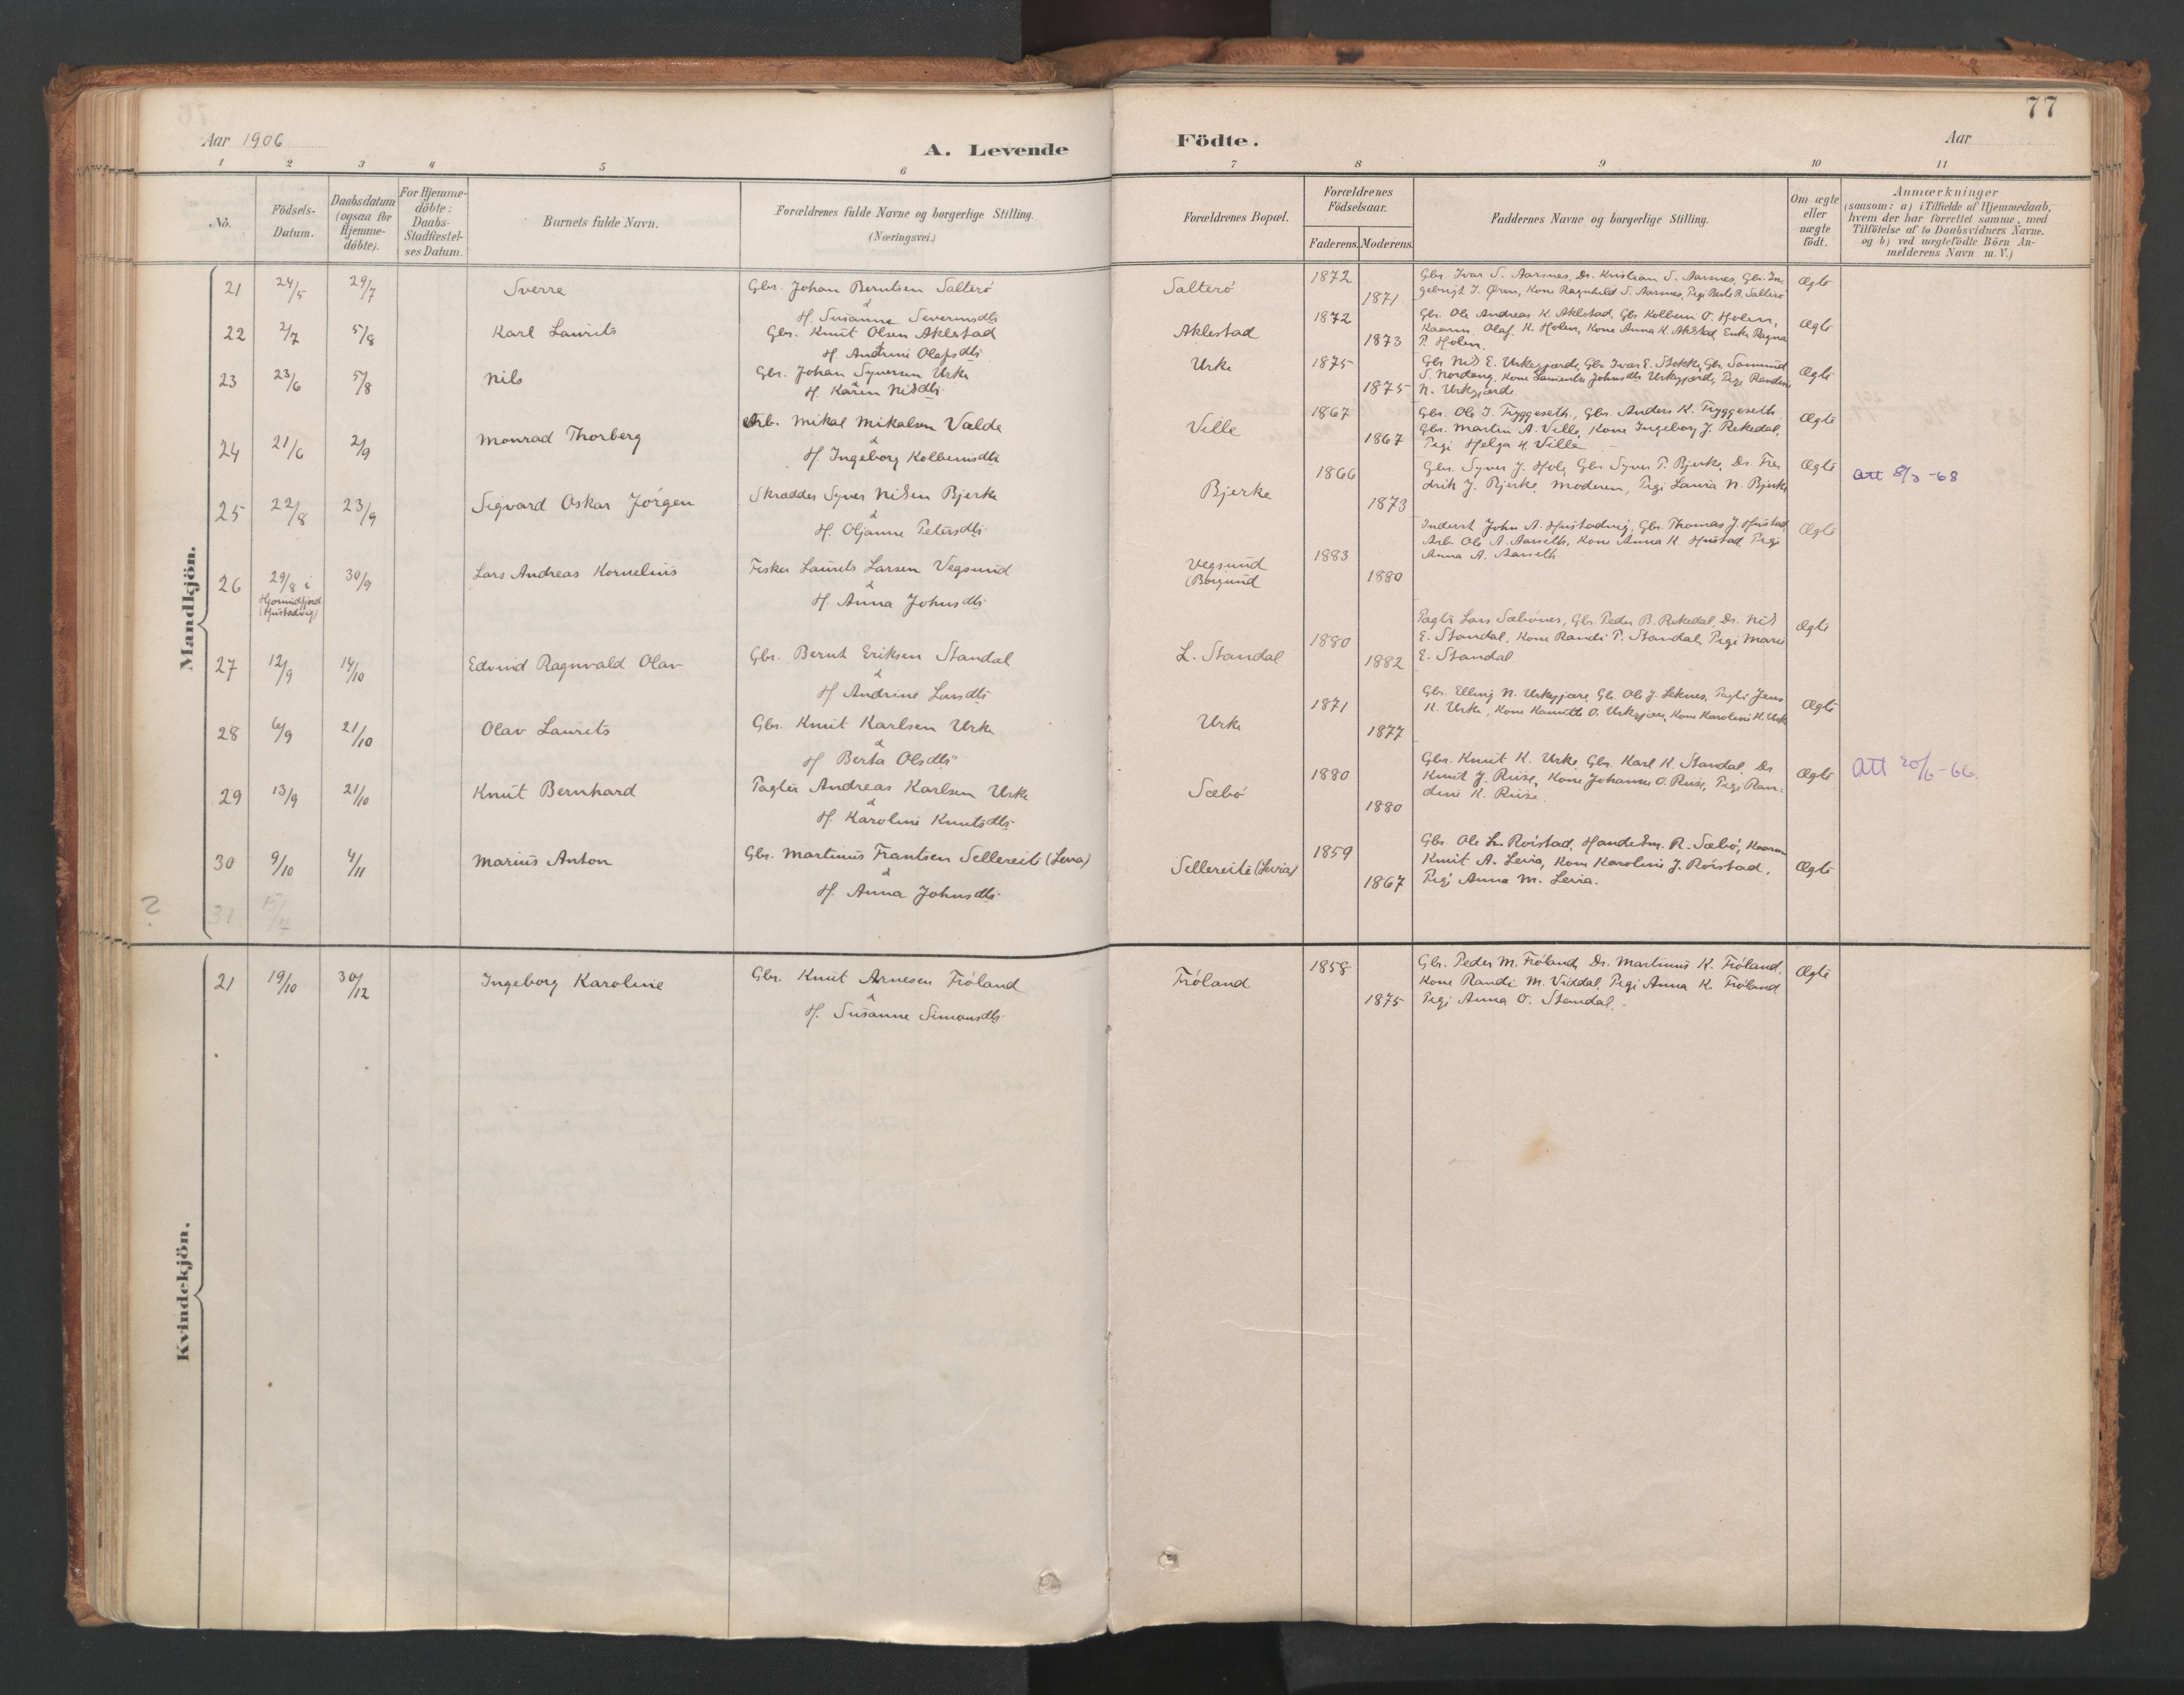 77
Aar 1906
A. Levende
Födte.
Aar
1 2 3 4 5 6 7 8 9 10 11
No.
Födsels-
Datum.
Daabsdatum
(ogsaa for
Hjemme-
döbte).
For Hjemme-
döbte:
Daabs-
Stadfæstel-
ses Datum.
Barnets fulde Navn.
Forældrenes fulde Navne og borgerlige Stilling.
(Næringsvei.)
Forældrenes Bopæl.
Forældrenes
Födselsaar.
Faderens. Moderens.
Faddernes Navne og borgerlige Stilling.
Om ægte
eller
uægte
födt.
Anmærkninger
(saasom: a) i Tilfælde af Hjemmedaab,
hvem der har forrettet samme, med
Tilföielse af to Daabsvidners Navne.
og b) ved uægtefödte Börn An-
melderens Navn m. V.)
Mandkjön.
21 24/5 29/7 Sverre
Gbr. Johan Berntsen Salterö
&
H. Susanne Severinsdtr
Salterö 1872 1871
Gbr. Ivar S. Aarsnes, Dr. Kristian S. Aarsnes, Gbr. In-
gebrigt J. Ören, Kone Ragnhild S. Aarsnes, Pigi Berte B. Salterö
Ægte
22 2/7 5/8 Karl Laurits
Gbr. Knut Olsen Aklestad
&
H. Andrine Olafsdtr
Aklestad 1872 1873
Gbr. Ole Andreas K. Aklestad, Gbr Kolbein O. Holen,
Kaarm. Olaf K. Holen, Kone Anna K. Aklestad, Enke Ragna
P. Holen.
Ægte
23 23/6 5/8 Nils
Gbr. Johan Syversen Urke
&
H. Karen Nilsdtr
Urke 1875 1875
Gbr Nils E. Urkegjærde, Gbr Ivar E. Stokke, Gbr. Samund
S. Nordang, Kone Johnsdtr Urkegjærde, Pigi Randine
N. Urkegjærde
Ægte
24 21/6 2/9 Monrad Thorberg
Arb. Mikal Mikalsen Valde
&
H. Ingeborg Kolbeinsdtr
Ville 1867 1867
Gbr. Ole J. Tryggeseth, Gbr. Anders K. Tryggeseth
Gbr. Martin A. Ville, Kone Ingeborg J. Rekedal,
Pigi Helga H. Ville
Ægte
25 22/8 23/9 Sigvard Oskar Jörgen
Skrædder Syver Nilsen Bjerke
&
H. Oljanne Petersdtr
Bjerke 1866 1873
Gbr. Syver J. Hole, Gbr Syver P. Bjerke, Dr. Fre-
drik J. Bjerke, Moderen, Pigi Laura N. Bjerke
Ægte
att 8/3 -68
26 29/8 i
Hjörundfjord
(Hustadvig)
30/9 Lars Andreas Kornelius
Fisker Laurits Larsen Vegsund
&
H. Anna Johnsdtr
Vegsund
(Borgund
1883 1880
Inderst John A. Hustadvig, Gbr. Thomas J. Hustad,
Arb. Ole A. Aarseth, Kone Anna K. Hustad Pigi
Anna A. Aarseth
Ægte
27 12/9 14/10 Edvind Ragnvald Olav
Gbr. Bernt Eriksen Standal
&
H. Andrine Larsdtr
L. Standal 1880 1882
Pagtr Lars Sæbönes, Gbr. Peder B. Rekedal, Dr. Nils
E. Standal, Kone Randi P. Standal, Pigi Marie
E. Standal
Ægte
28 6/9 21/10 Olav Laurits
Gbr. Knut Karlsen Urke
&
H. Berta Olsdtr
Urke 1871 1877
Gbr. Elling N. Urkegjære, Gbr. Ole J. Leknes, Pagtr Jens
K. Urke, Kone O. Urkegjære, Kone Karoline K. Urke
Ægte
29 13/9 21/10 Knut Bernhard
Pagter Andreas Karlsen Urke
&
H. Karoline Knutsdtr
Sæbö 1880 1880
Gbr. Knut K. Urke, Gbr. Karl K. Standal, Dr.
Knut J. Riise, Kone Johanne O. Riise, Pigi Ran-
dine K. Riise
Ægte
att 20/6 -66.
30 9/10 4/11 Marius Anton
Gbr. Martinus Frantsen Sellereite (Leira)
&
H. Anna Johnsdtr
Sellereite (Leira) 1859 1867
Gbr. Ole Rörstad, Handelsm. R. Sæbö, Kaarm
Knut A. Leira, Kone Karoline J. Rörstad,
Pigi Anna M. Leira.
Ægte
? 31 15/7
Kvindekjön.
21 19/10 30/12 Ingeborg Karoline
Gbr. Knut Arnesen Fröland
&
H. Susanne Simonsdtr
Fröland 1858 1875
Gbr. Peder M. Fröland, Dr. Martinus K. Fröland,
Kone Randi M. Viddal, Pigi Anna K. Fröland
Pigi Anna O. Standal.
Ægte